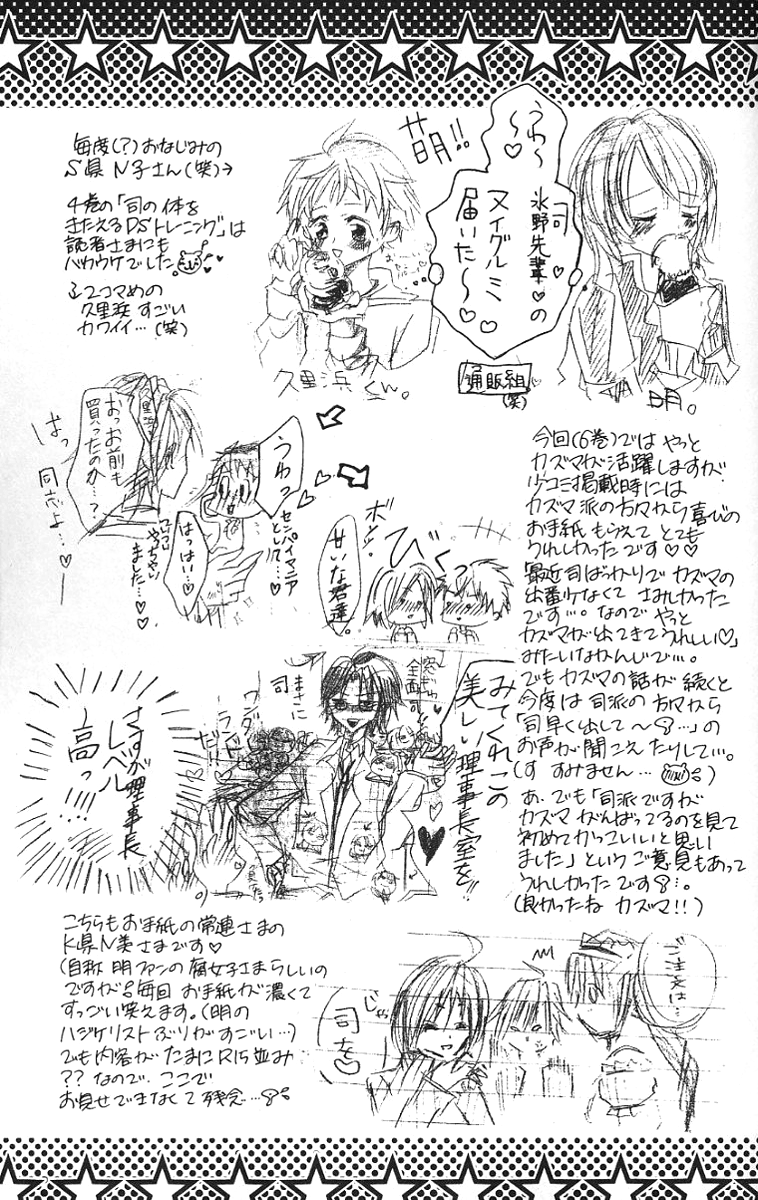 毎度(?)おなじみの
S県 N子さん(笑)→
4巻の「司の体を
きたえるDSトレーニング」は
読者さまにも
バカウケでした。
↓2コマめの
久里浜 すごい
カワイイ…(笑)
うわ〜
〜♡
司♡
氷野先輩♡の
ヌイグルミ
届いた〜♡♡
明!!
久里浜くん。
通販組
(笑)
明。
うわっ
おっお前も
買ったのか…?
ばっ
同志よ…♡
はっはい…♡
センパイマニア
として…♡
ココロ
やっちゃい
ました…♡
ボソ!
びくっ
甘いな君達。
今回(6巻)では やっと
カズマが活躍しますが
少コミ掲載時には
カズマ派の方々から喜びの
お手紙 もらえて とても
うれしかったです♡♡
最近司ばっかりで カズマの
出番 少なくて さみしかった
です…。なので やっと
カズマが出てきてうれしい♡」
みたいなかんじで…。
でも カズマの話が 続くと
今度は 司派の 方々から
「司早く出して〜…」の
お声が 聞こえたりして…。
(す すみません…)
あ、でも「司派ですが
カズマ がんばってるのを見て
初めてかっこいいと思い
ました」という ご意見もあって
うれしかったです…。
(良かったね カズマ!!)
みてくれこの
美しい理事長室を!!
まさに
司
ワンダー
ランド
だ!!
さすが理事長
レベル
高っ!!!!
こちらもお手紙の常連さまの
K県N美さまです♡
(自称 明ファンの腐女子さまらしいの
ですが 毎回 お手紙が濃くて
すっごい笑えます。(明の
ハジケリストぶりがすごい…)
でも内容が たまにR15並み…
??なので、ここで
お見せできなくて残念…
ご注文は…
じゃ
司を♡